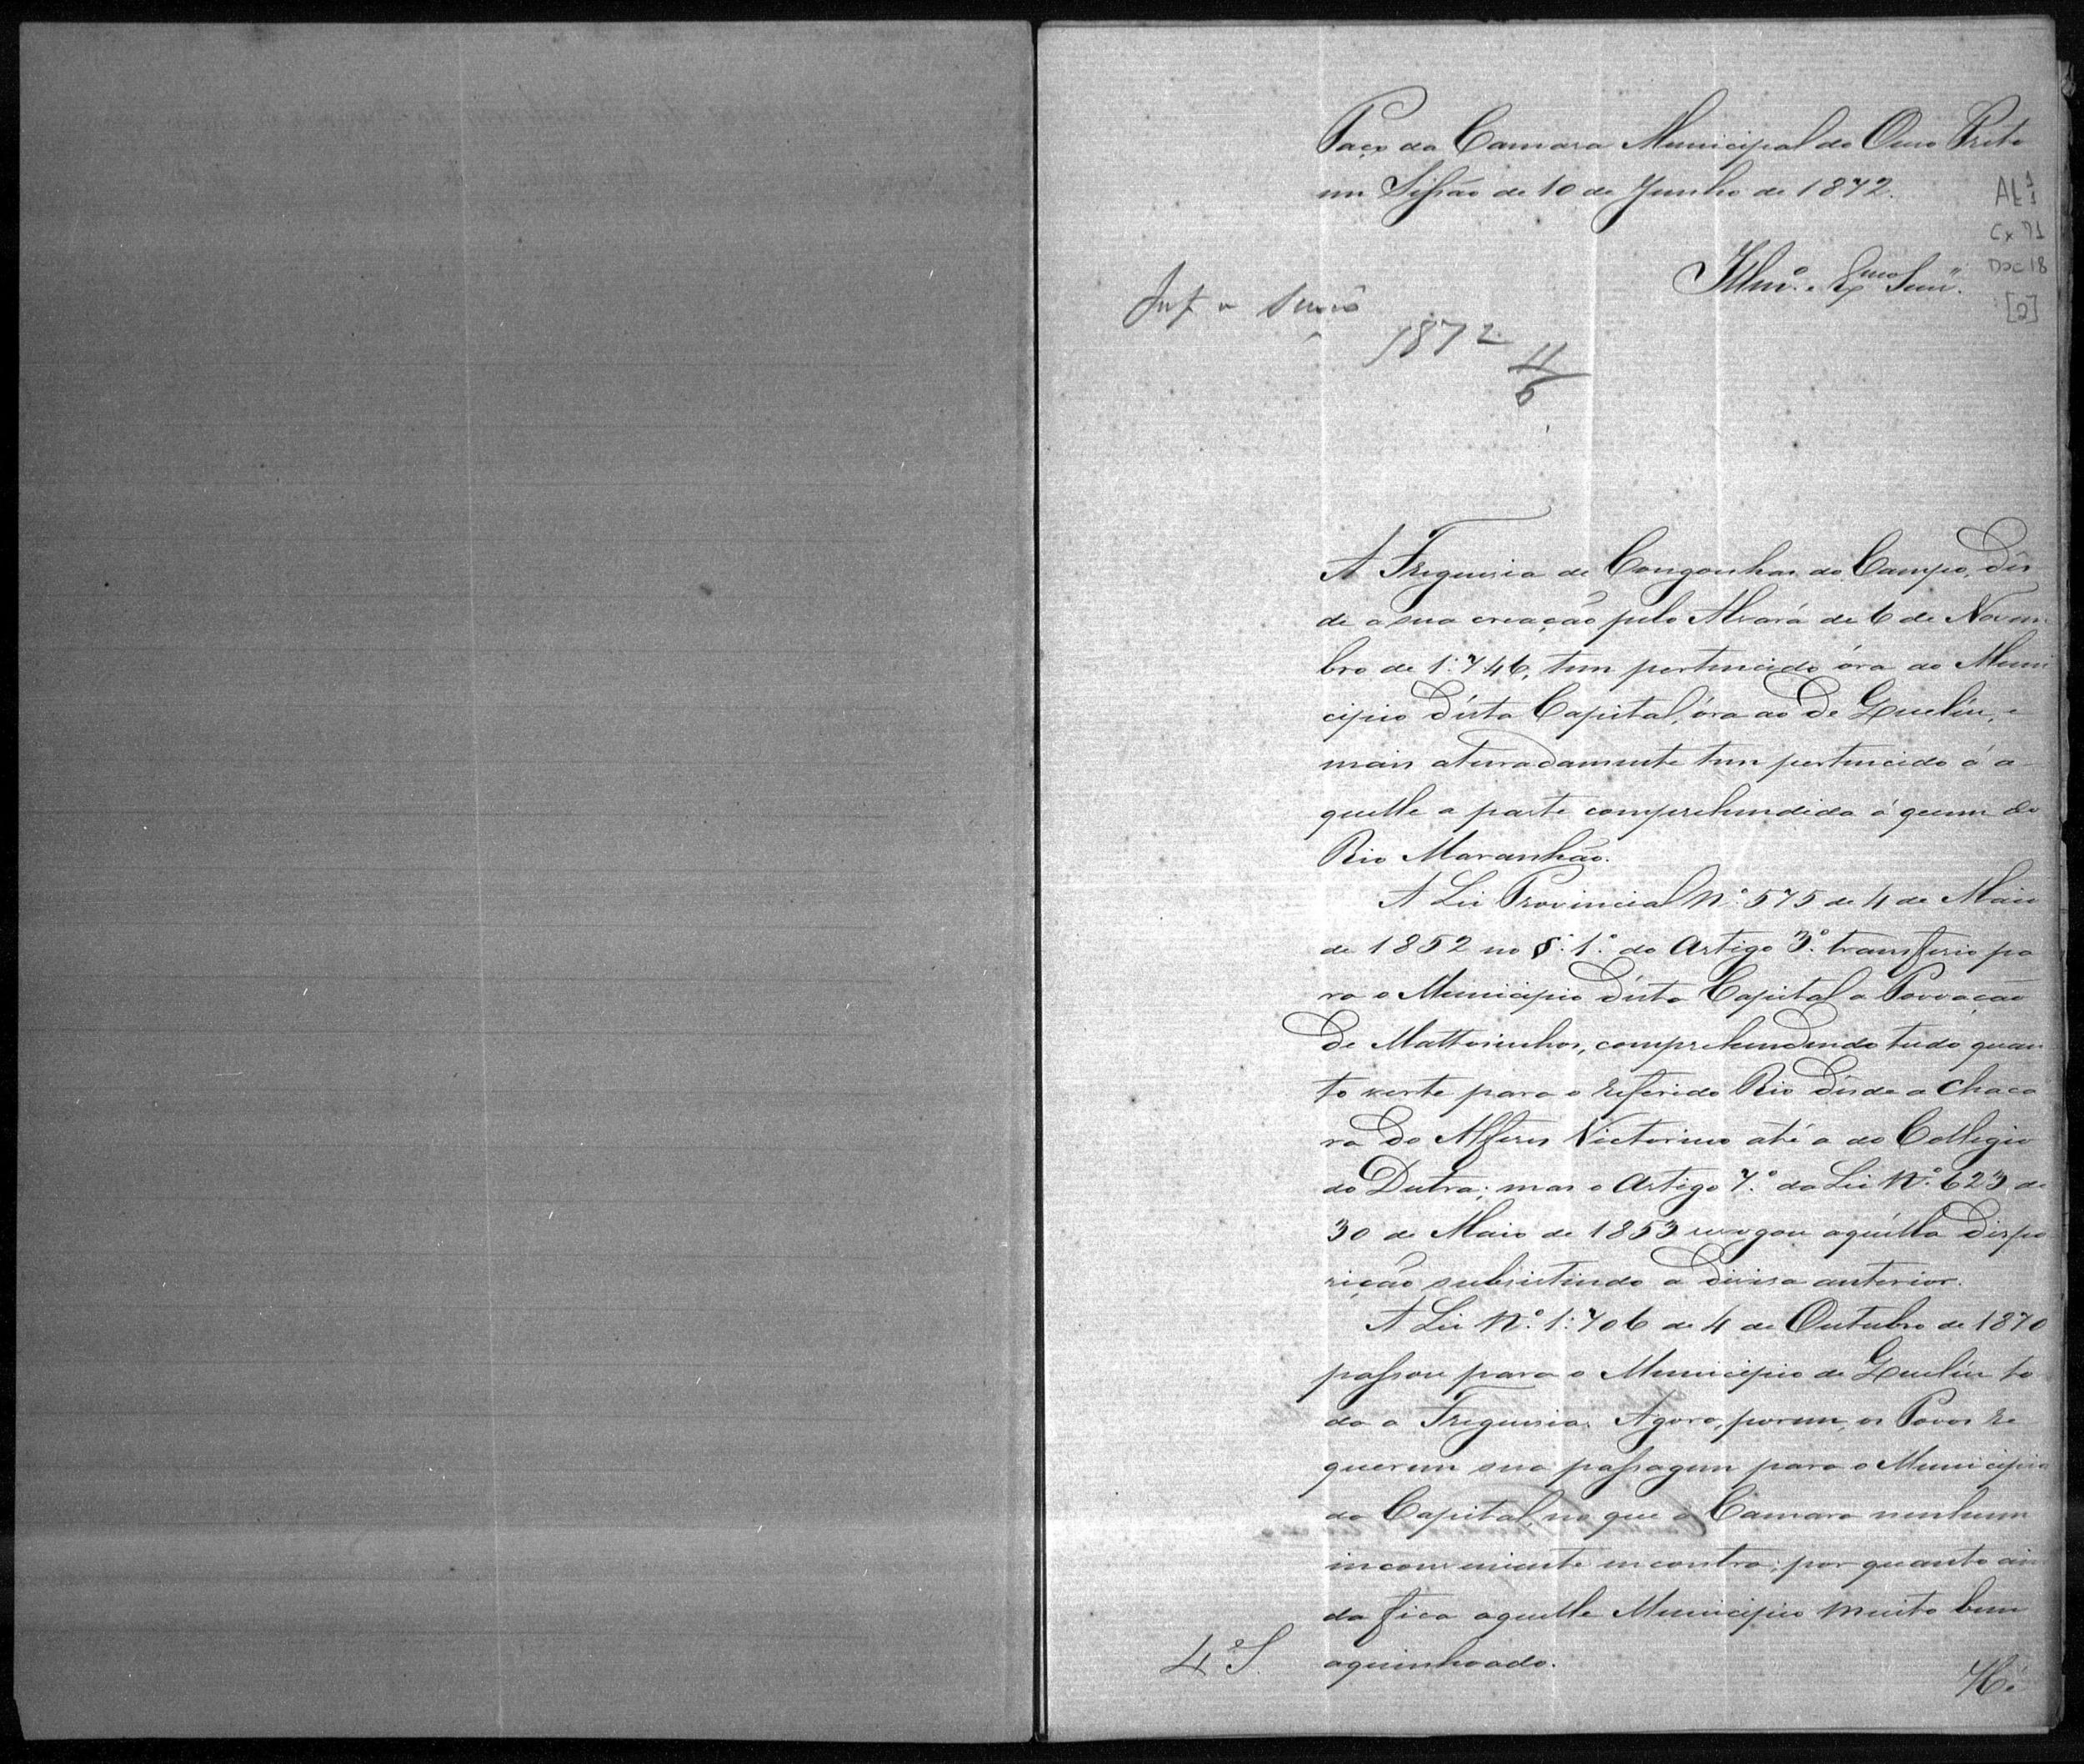 Paço da Camara Municipal do Ouro Preto
em Sessão de 10 de Junho de 1872.
AL1
1
Cx 71
Doc 18
[2]
Illm.º e Exmo Senr.
Inf a
1872 11/6
A Freguesia de Congonhas do Campo, dês
de a sua creação pelo Alvará de 6 de Novem
bro de 1.746, tem pertencido óra ao Muni
cipio d'ésta Capital, óra ao de Queluz, e
mais aturadamente tem pertencido á a
quelle a parte comprehendida á quem do
Rio Maranhão.
A Lei Provincial N.º 575 de 4 de Maio
de 1852 no §. 1.º do Artigo 3.º transferio pa
ra o Municipio d'ésta Capital a Povoação
de Mattosinhos, comprehendendo tudo quan
to verte para o referido Rio désde a chaca
ra do Alferes Victorino até a do Collegio
do Dutra; mas o Artigo 7.º da Lei N.º 623 de
30 de Maio de 1853 revogou aquélla dispo
sição subsistindo a divisa anterior.
A Lei N.º 1.706 de 4 de Outubro de 1870
passou para o Municipio de Queluz to
da a Freguesia. Agora, porem, os Povos re
querem sua passagem para o Municipio
da Capital, no que a Camara nenhum
inconveniente encontra; por quanto ain
da fica aquelle Municipio muito bem
aquinhoado.
4ªS.
Há